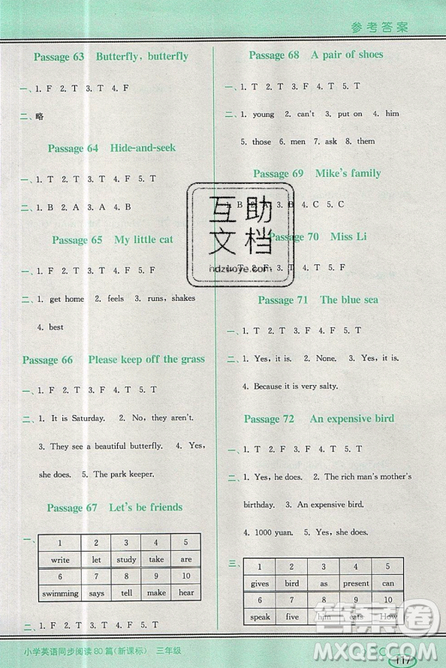 参考答案
Passage 63 Butterfly, butterfly
一、1. F 2. T 3. T 4. F
二、略
Passage 64 Hide-and-seek
一、1. T 2. T 3. T 4. F 5. T
二、1. B 2. A 3. A 4. B 5. A
Passage 65 My little cat
一、1. F 2. F 3. T 4. T 5. T
二、1. get home 2. feels 3. runs, shakes
4. best
Passage 66 Please keep off the grass
一、1. T 2. F 3. F 4. F 5. T
二、1. It is Saturday. 2. No, they aren't.
3. They see a beautiful butterfly. 4. Yes,
she does. 5. The park keeper.
Passage 67 Let's be friends
一、
1 2 3 4 5
write let study take are
6 7 8 9 10
swimming says tell here have
小学英语同步阅读80篇(新课标) 三年级
Passage 68 A pair of shoes
一、1. T 2. T 3. F 4. T 5. T
二、1. young 2. can't 3. put on 4. him
5. those 6. men 7. ask 8. them
Passage 69 Mike's family
1. B 2. 3. B 4. C 5. C
Passage 70 Miss Li
1. T 2. F 3. T 4. T 5. F
Passage 71 The blue sea
一、1. T 2. F 3. F 4. T 5. F
二、1. Yes, it is. 2. None. 3. Yes, it is.
4. Because it is very salty.
Passage 72 An expensive bird
一、1. T 2. F 3. F 4. T 5. T
二、1. Yes, he does. 2. The rich man's mother's
birthday. 3. An expensive bird.
4. 1000 yuan. 5. Yes, she does.
三、
1 2 3 4 5
gives bird as present can
6 7 8
sing it eats
117
互助
文档
hdzuoye.com